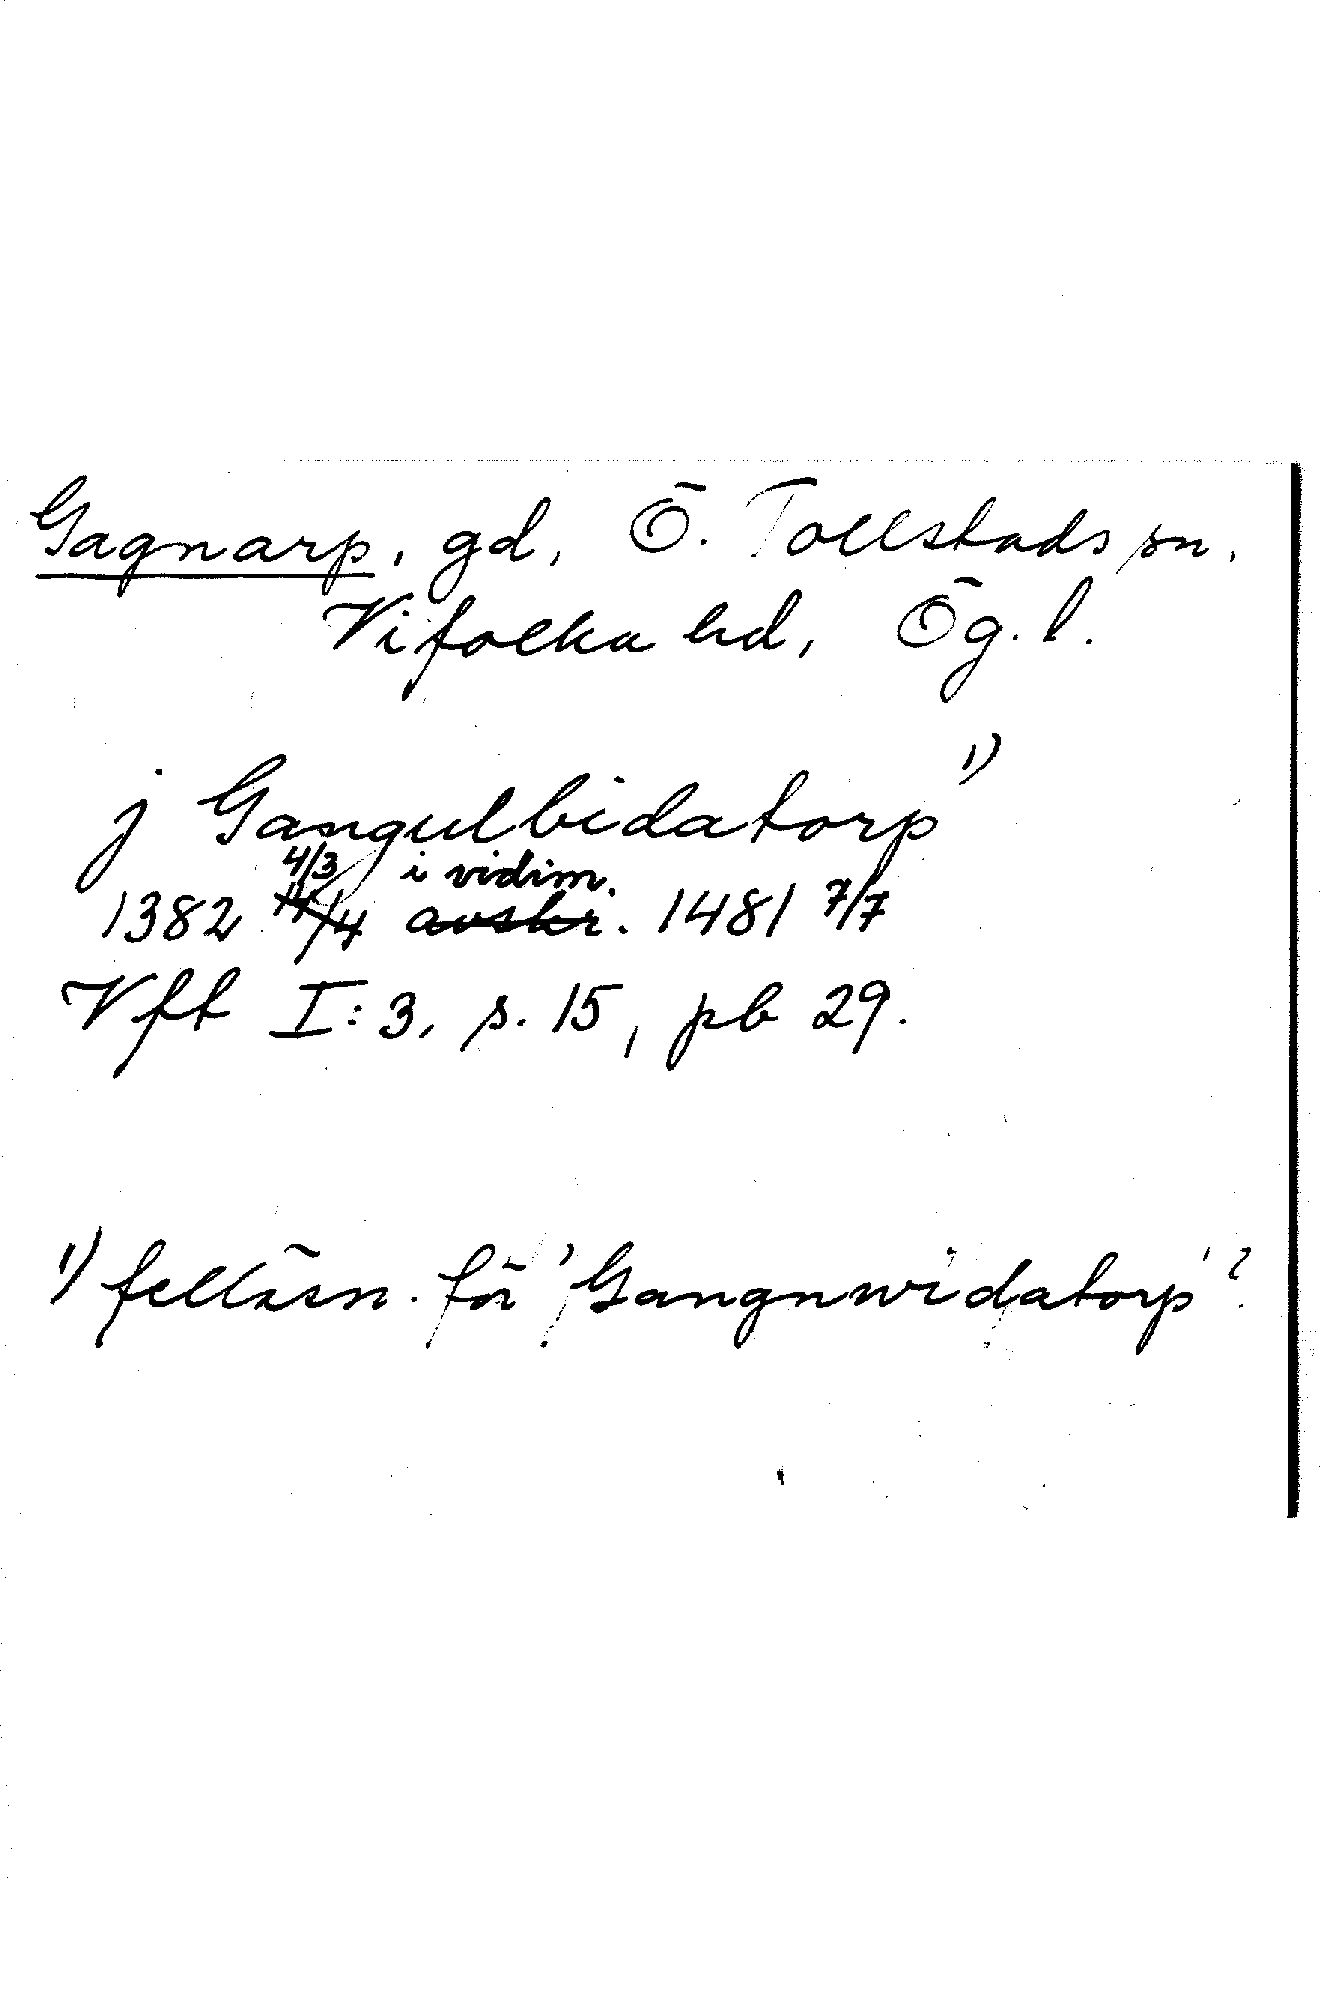 Gagnarp, gd, Ö. Tollstads sn,
Vifolka hd, Ög. l.
j Gangulbidatorp 1)
4/3 i vidim.
1382 14/4 avskr. 1481 7/7
Vft I:3, s. 15, pb 29.
1) felläsn. för 'Gangnwidatorp'?